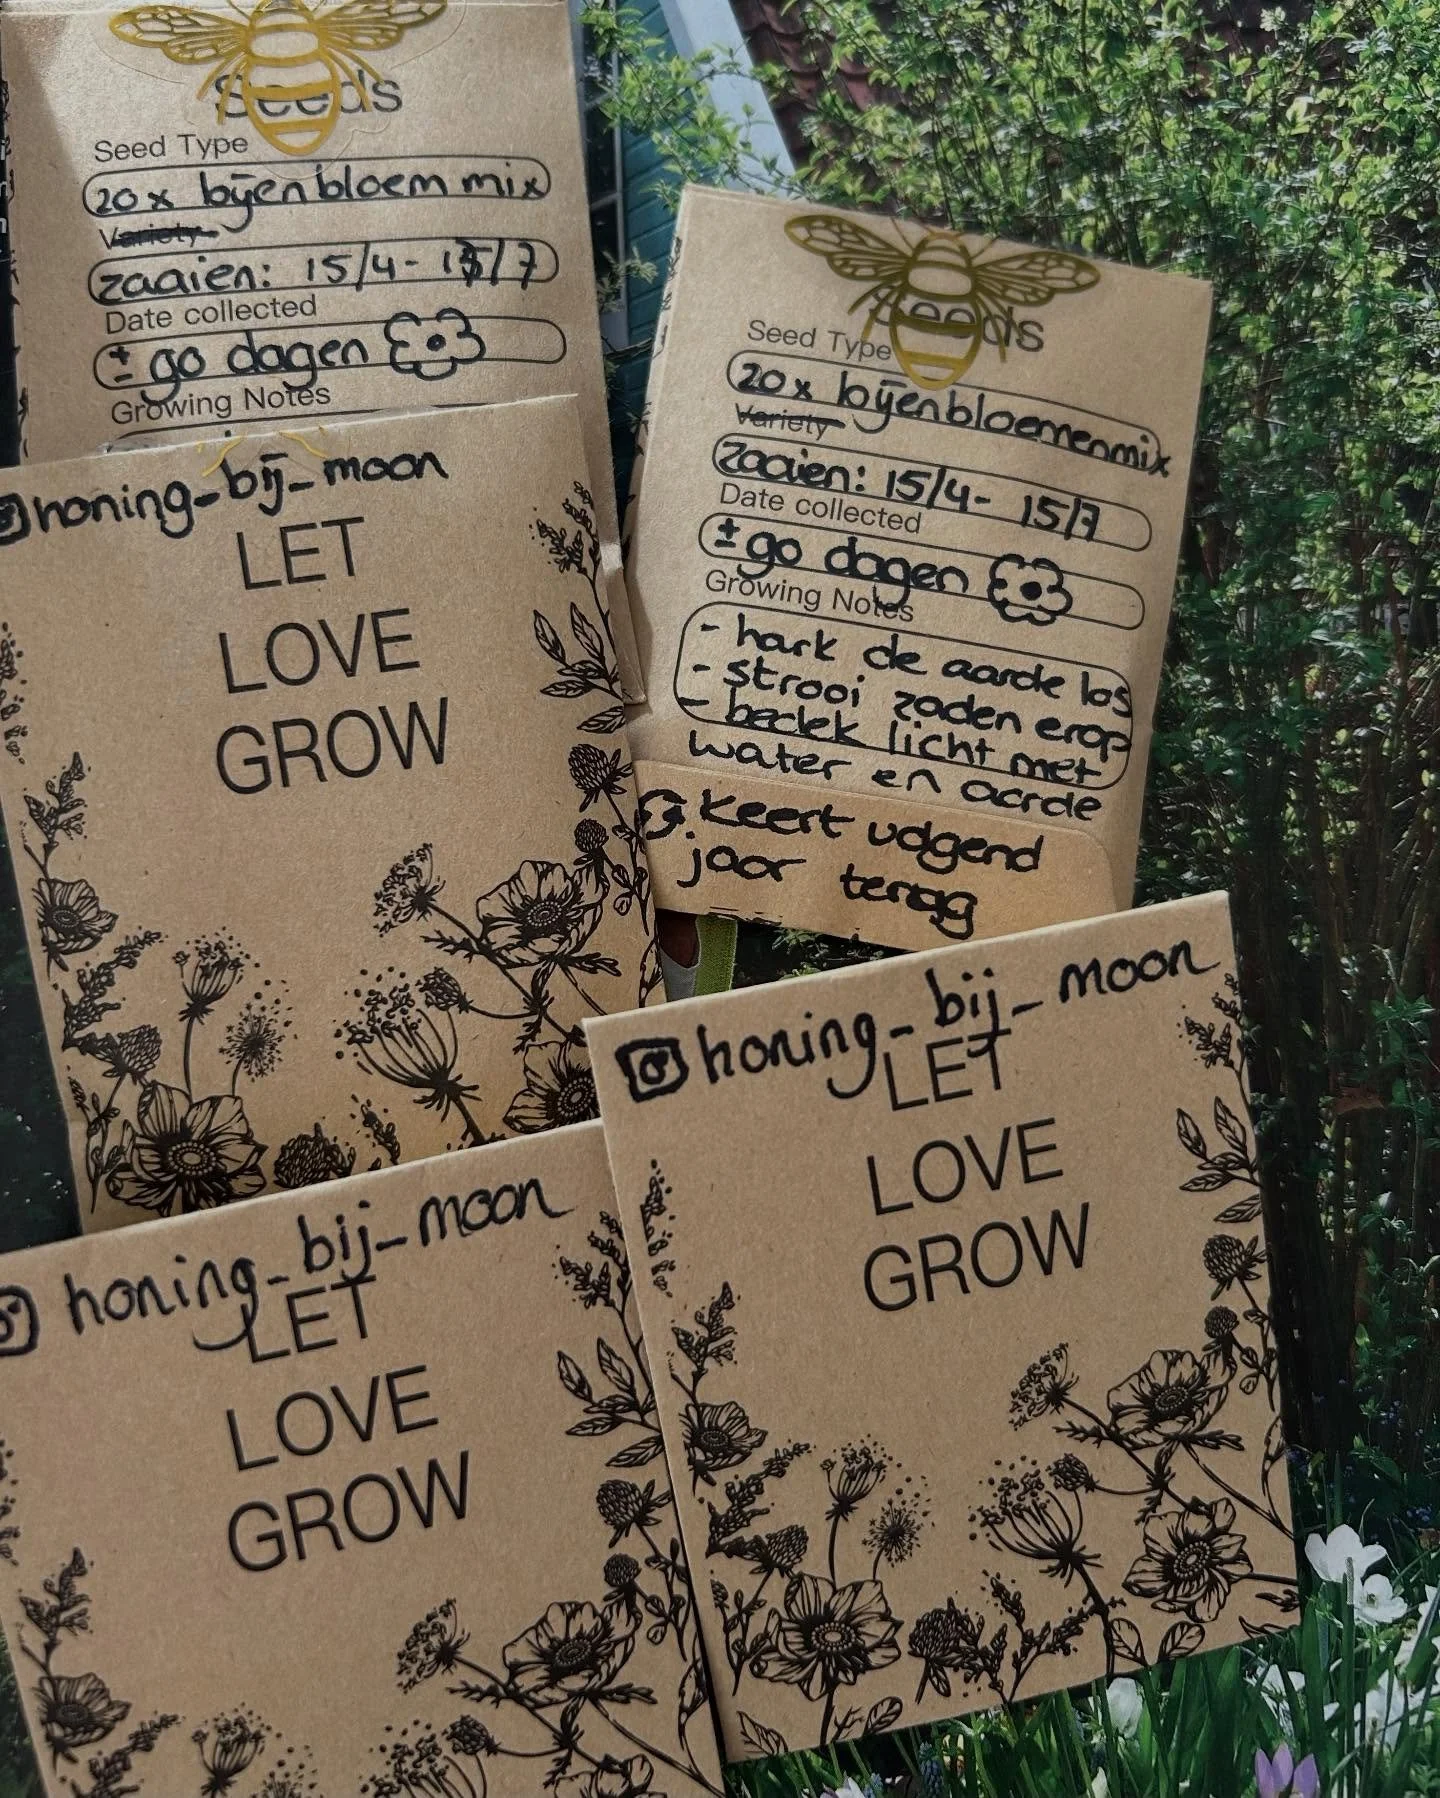 Seeds
Seed Type
20x bijenbloem mix
Variety
zaaien: 15/4 - 15/7
Date collected
± 90 dagen
Growing Notes
honing_bij_moon
LET
LOVE
GROW
Seeds
Seed Type
20x bijenbloemenmix
Variety
Zaaien: 15/4 - 15/7
Date collected
± 90 dagen
Growing Notes
- hark de aarde los
- strooi zaden erop
- bedek licht met
water en aarde
Keert volgend
jaar terug
honing_bij_moon
LET
LOVE
GROW
honing_bij_moon
LET
LOVE
GROW